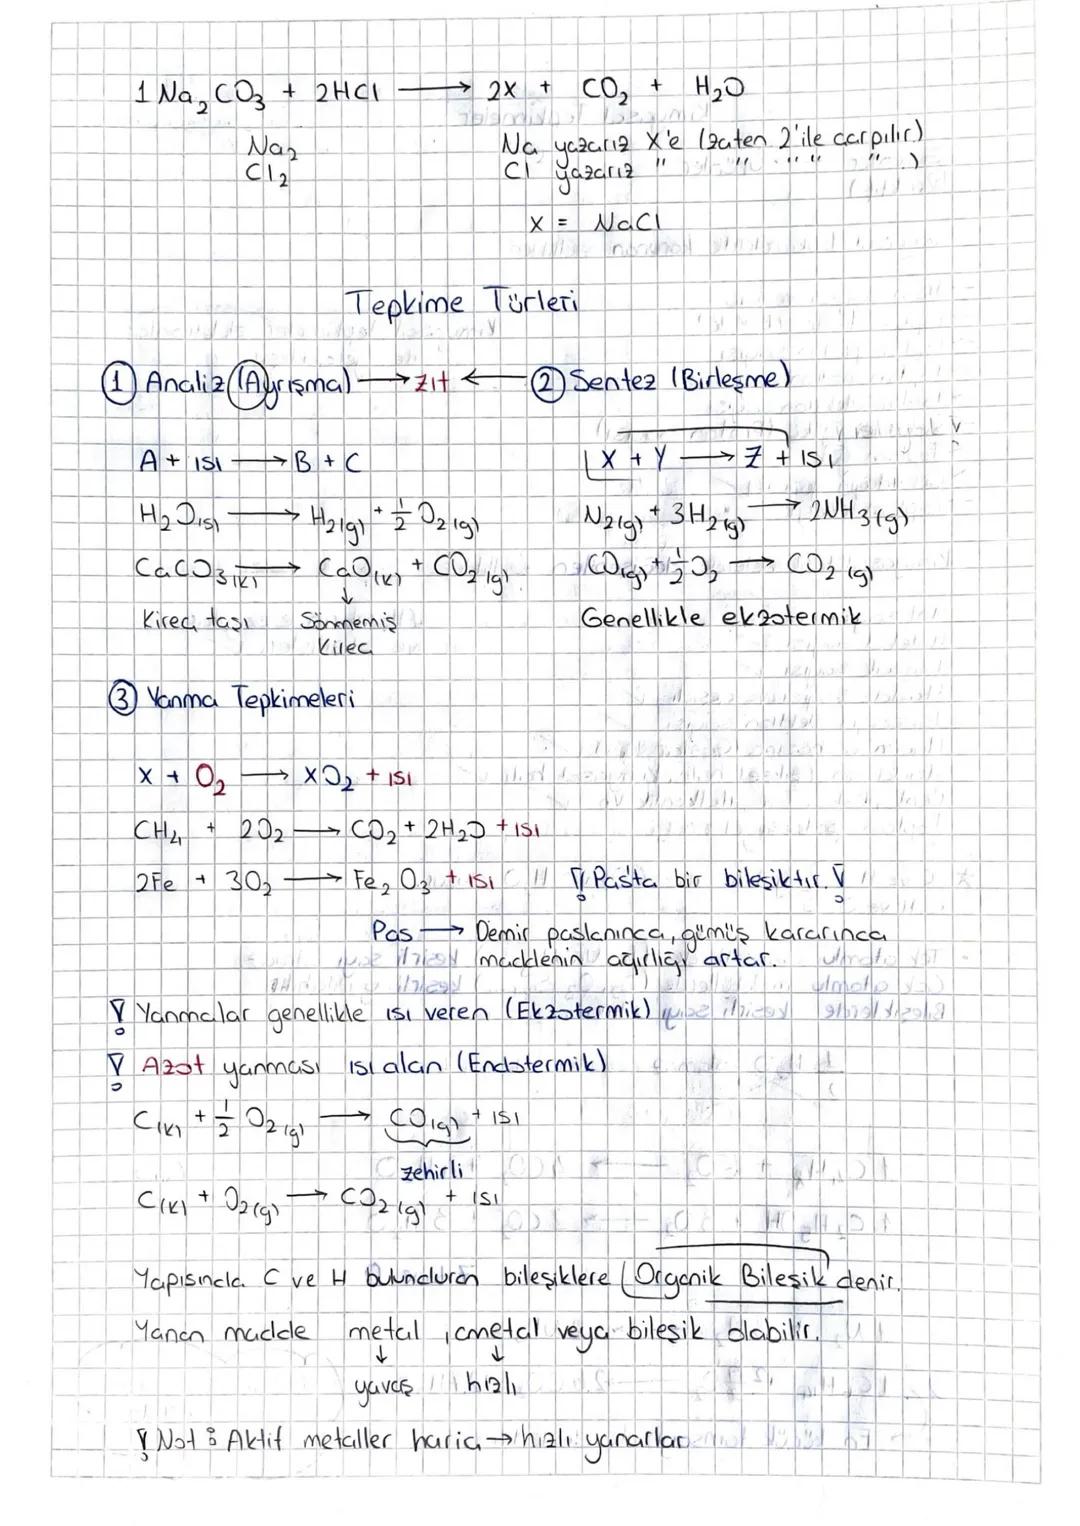 1 Na₂CO₃ + 2HCl → 2x + CO₂ + H₂O
Na₂ Na yazarız X'e (zaten 2'ile çarpılır)
Cl₂ Cl yazarız " " " " " )
x = NaCl
Tepkime Türleri
① Analiz (Ayrışma) → zıt ← ② Sentez (Birleşme)
A + ısı → B + C
X + Y → Z + ısı
H₂O(s) → H₂(g) + 1/2 O₂(g)
N₂(g) + 3H₂(g) → 2NH₃(g)
CaCO₃(k) → CaO(k) + CO₂(g)
CO(g) + 1/2 O₂ → CO₂(g)
Kireç taşı
↓ Sönmemiş Kireç
Genellikle ekzotermik
③ Yanma Tepkimeleri
X + O₂ → XO₂ + ısı
CH₄ + 2O₂ → CO₂ + 2H₂O + ısı
2Fe + 3O₂ → Fe₂O₃ + ısı ! Pasta bir bileşiktir. !
Pas → Demir paslanınca, gümüş kararınca
maddenin ağırlığı artar.
! Yanmalar genellikle ısı veren (Ekzotermik)
! Azot yanması ısı alan (Endotermik)
C(k) + 1/2 O₂(g) → CO(g) + ısı
zehirli
C(k) + O₂(g) → CO₂(g) + ısı
Yapısında C ve H bulunduran bileşiklere Organik Bileşik denir.
Yanan madde metal, ametal veya bileşik olabilir.
↓ ↓
yavaş hızlı
! Not : Aktif metaller hariç → hızlı yanarlar